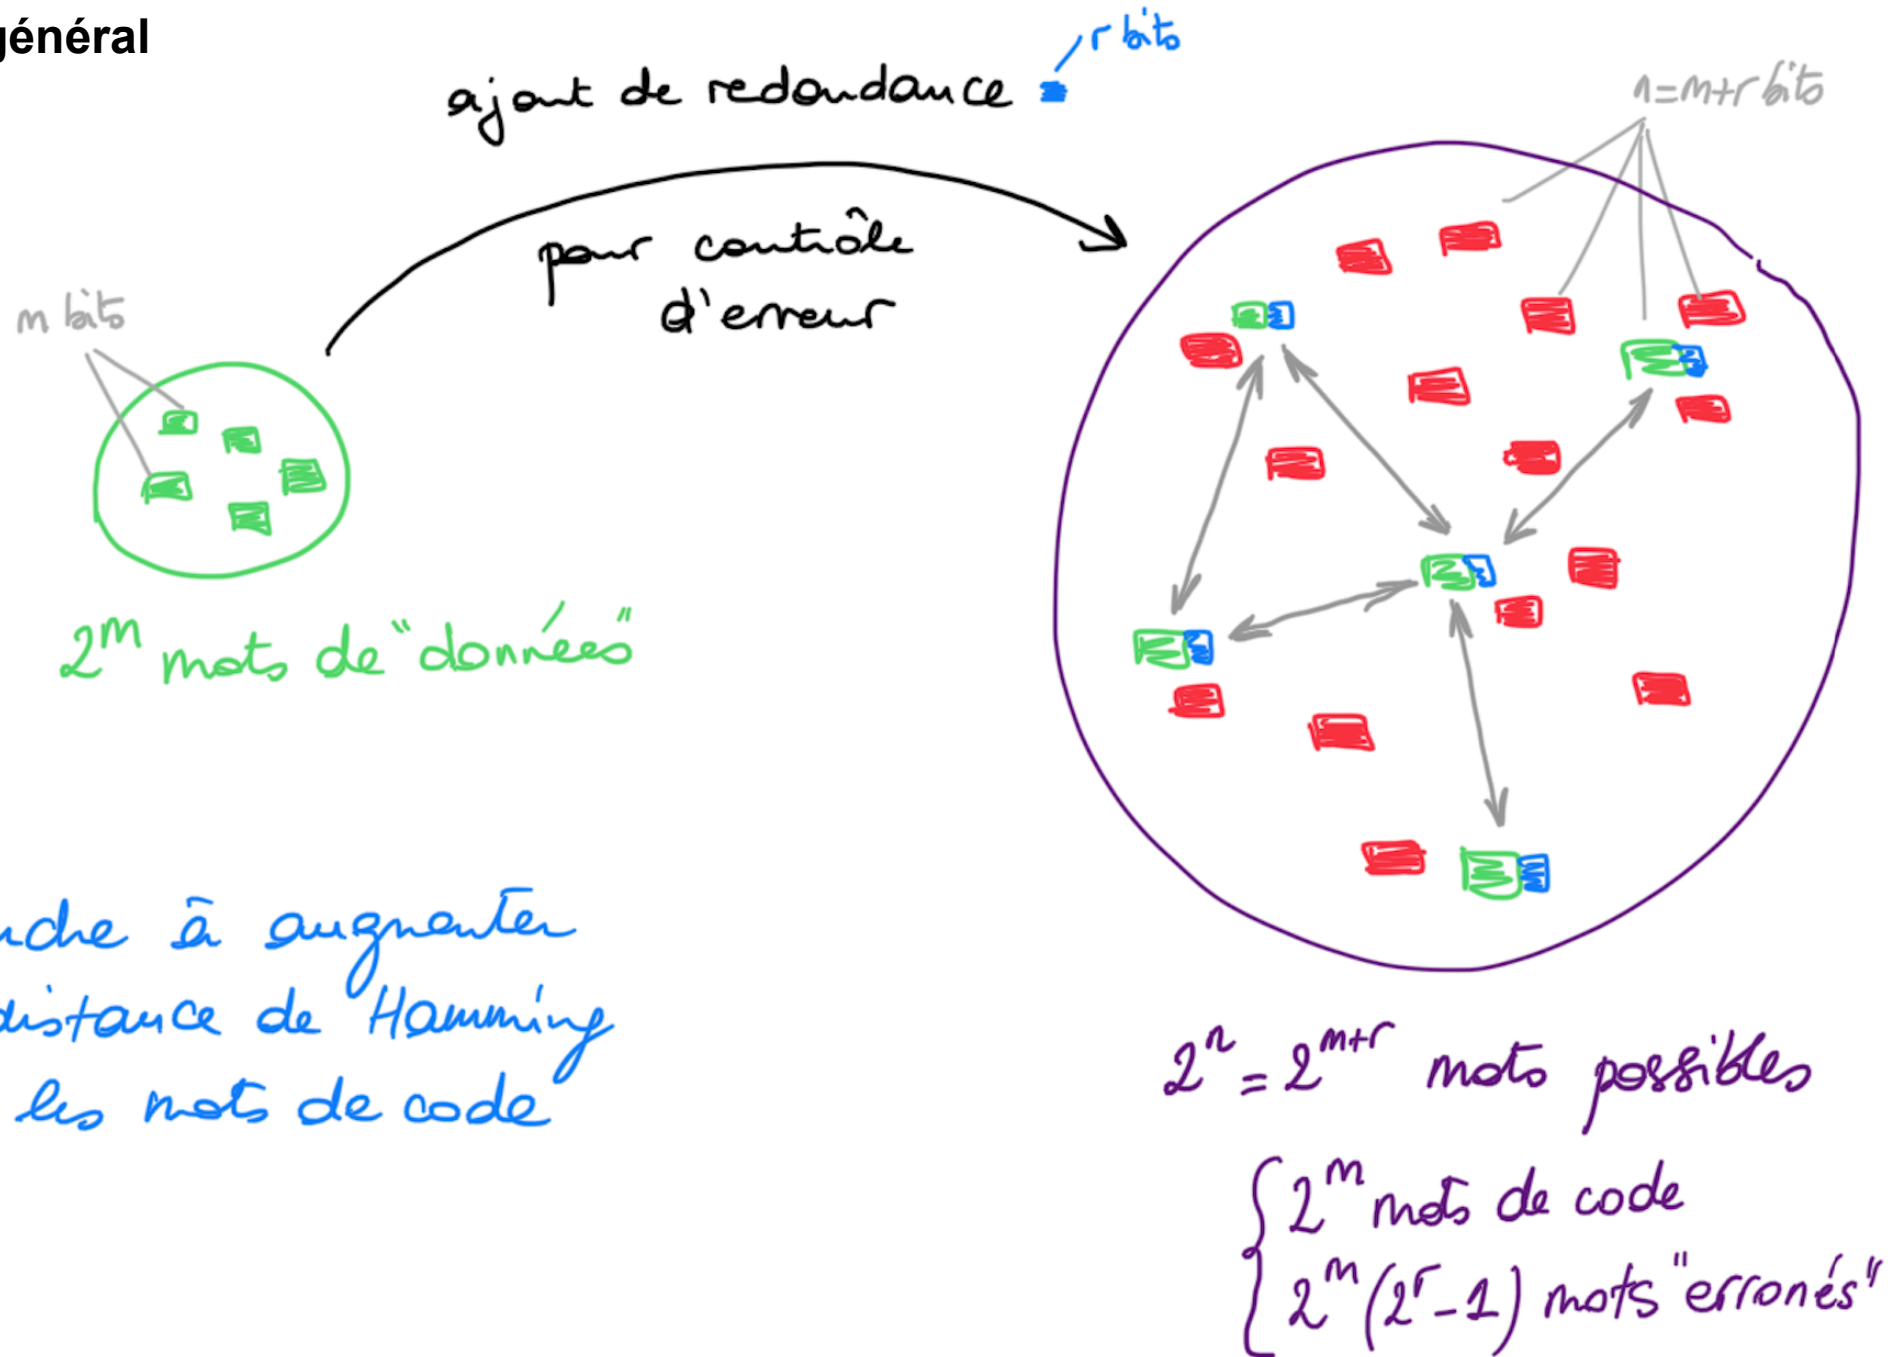 général
r bits
ajout de redondance
n=m+r bits
pour contrôle
d'erreur
m bits
2^m mots de "données"
à augmenter
distance de Hamming
les mots de code
2^n = 2^{m+r} mots possibles
2^m mots de code
2^m (2^r - 1) mots "erronés"